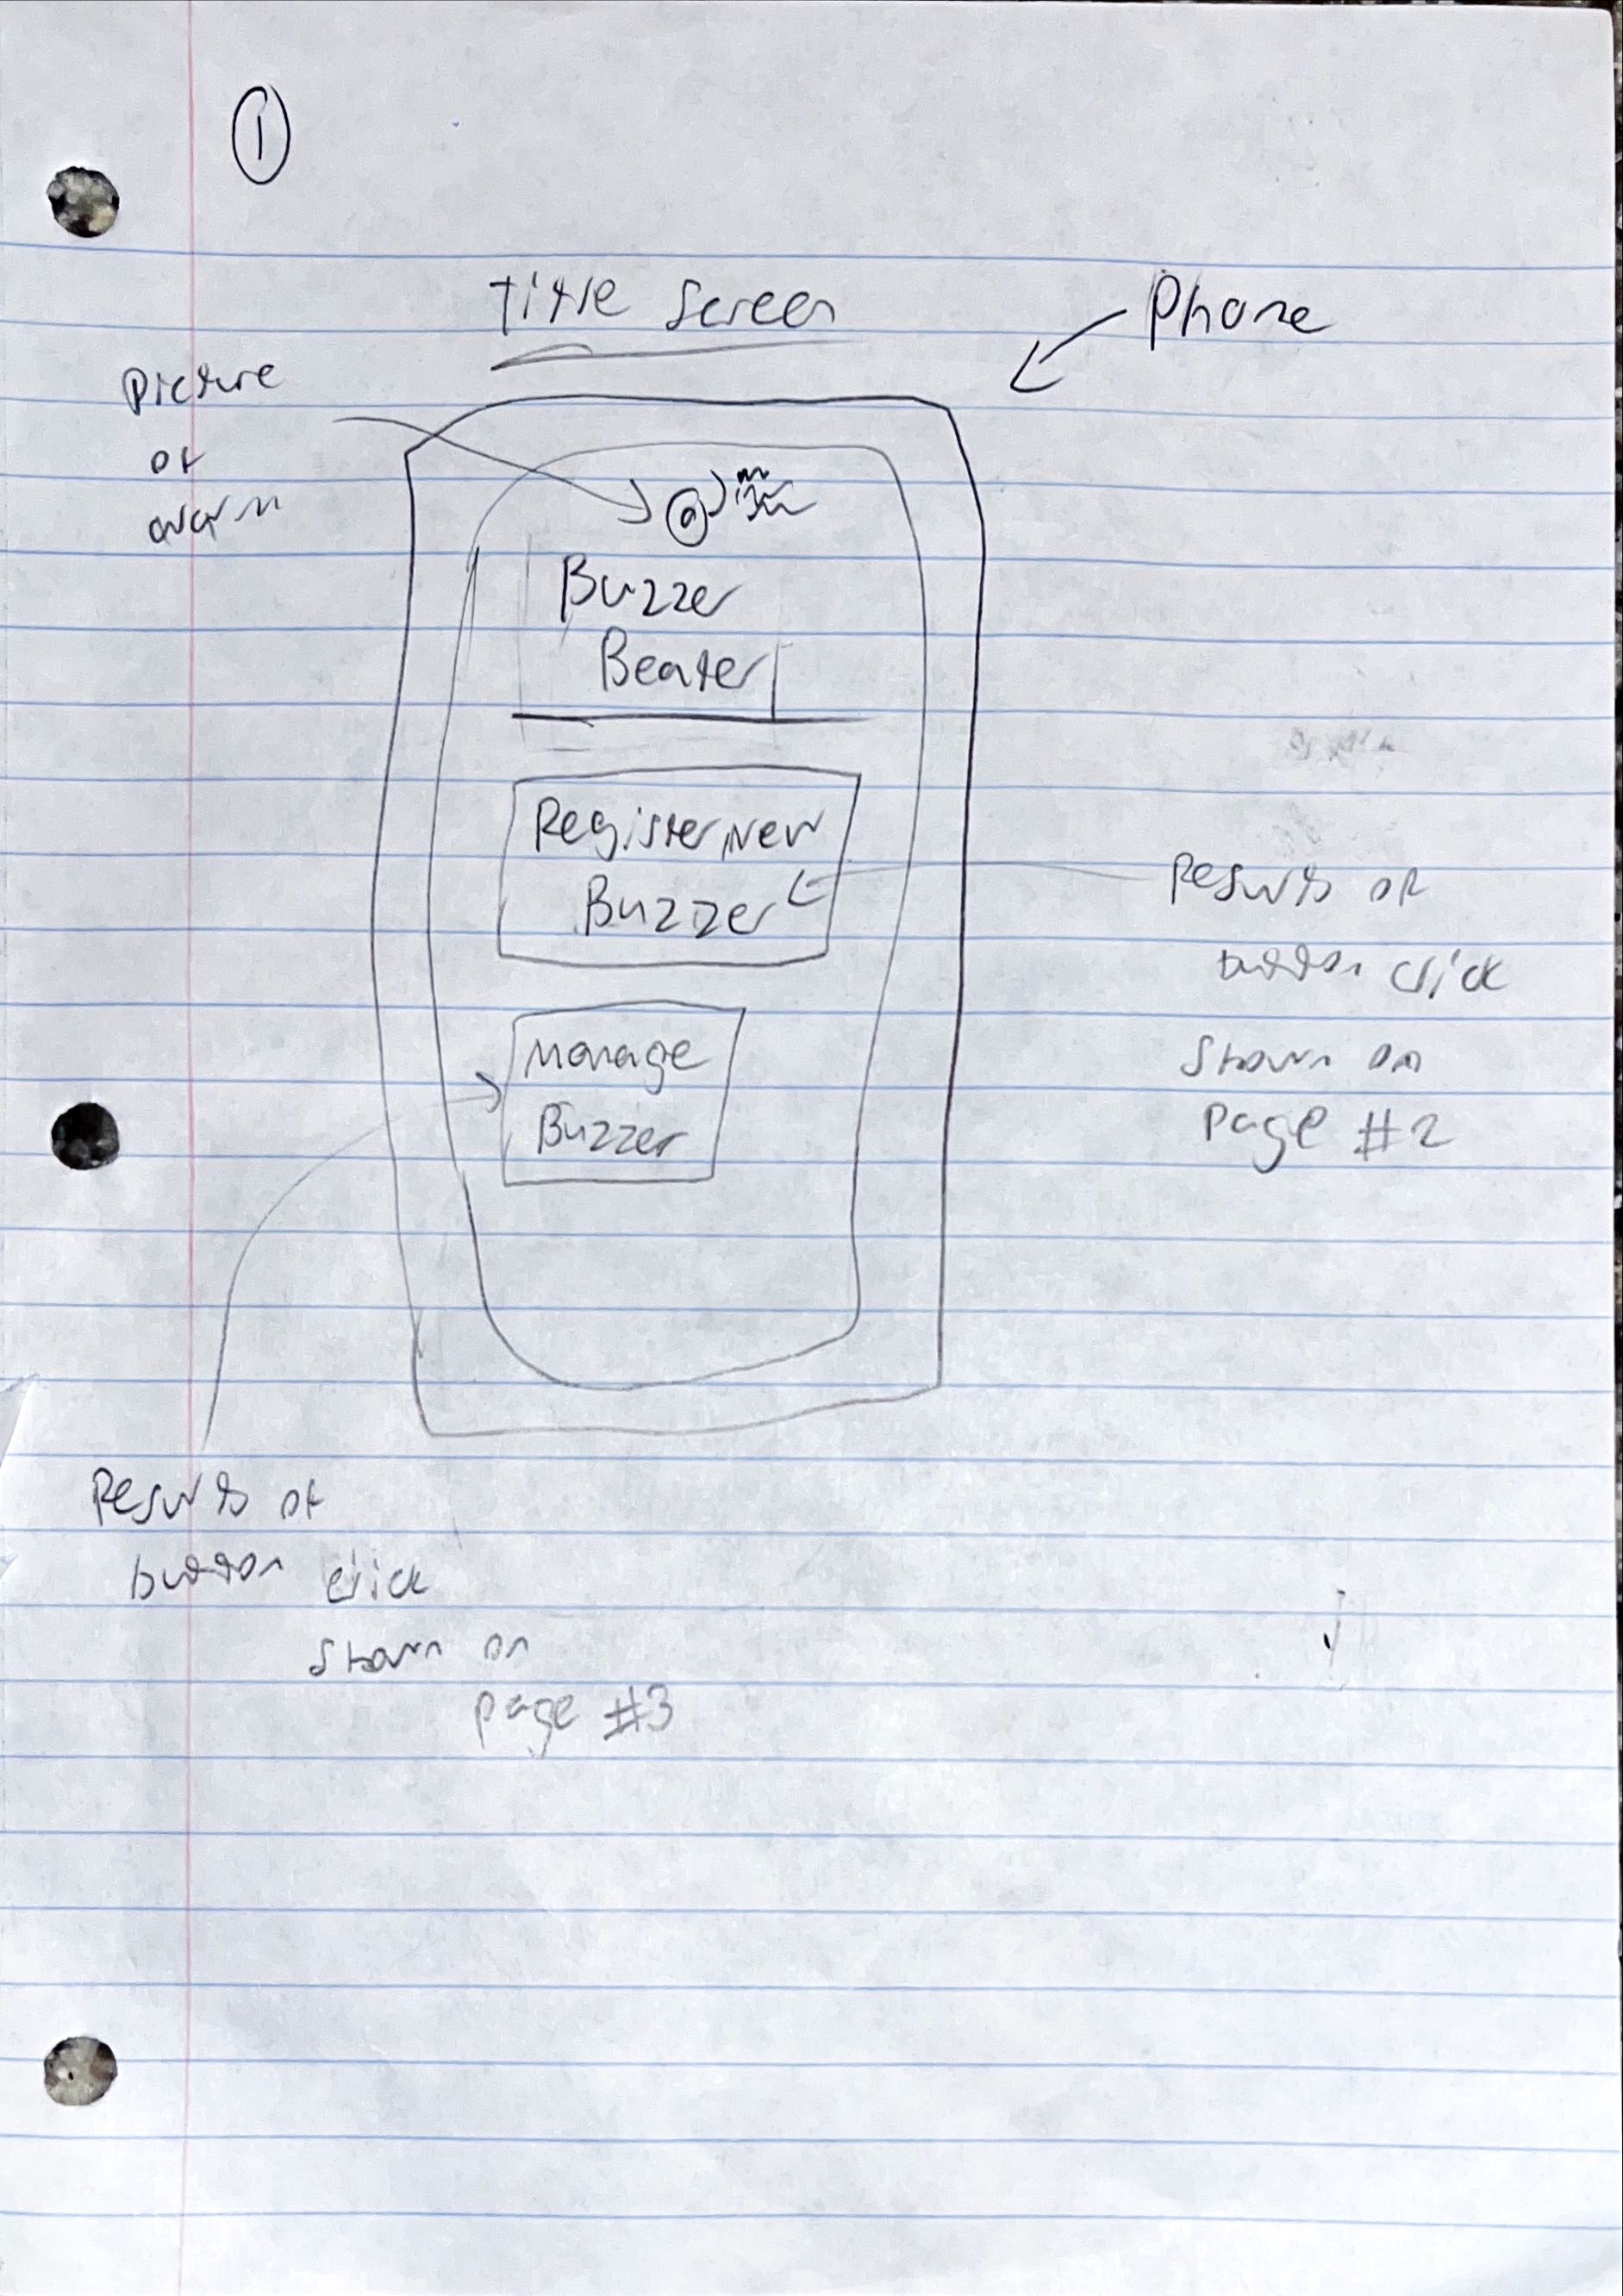 1
Title Screen
Phone
Picture
of
alarm
Buzzer
Beater
Register New
Buzzer
Results of
button click
shown on
page #2
Manage
Buzzer
Results of
button click
shown on
page #3